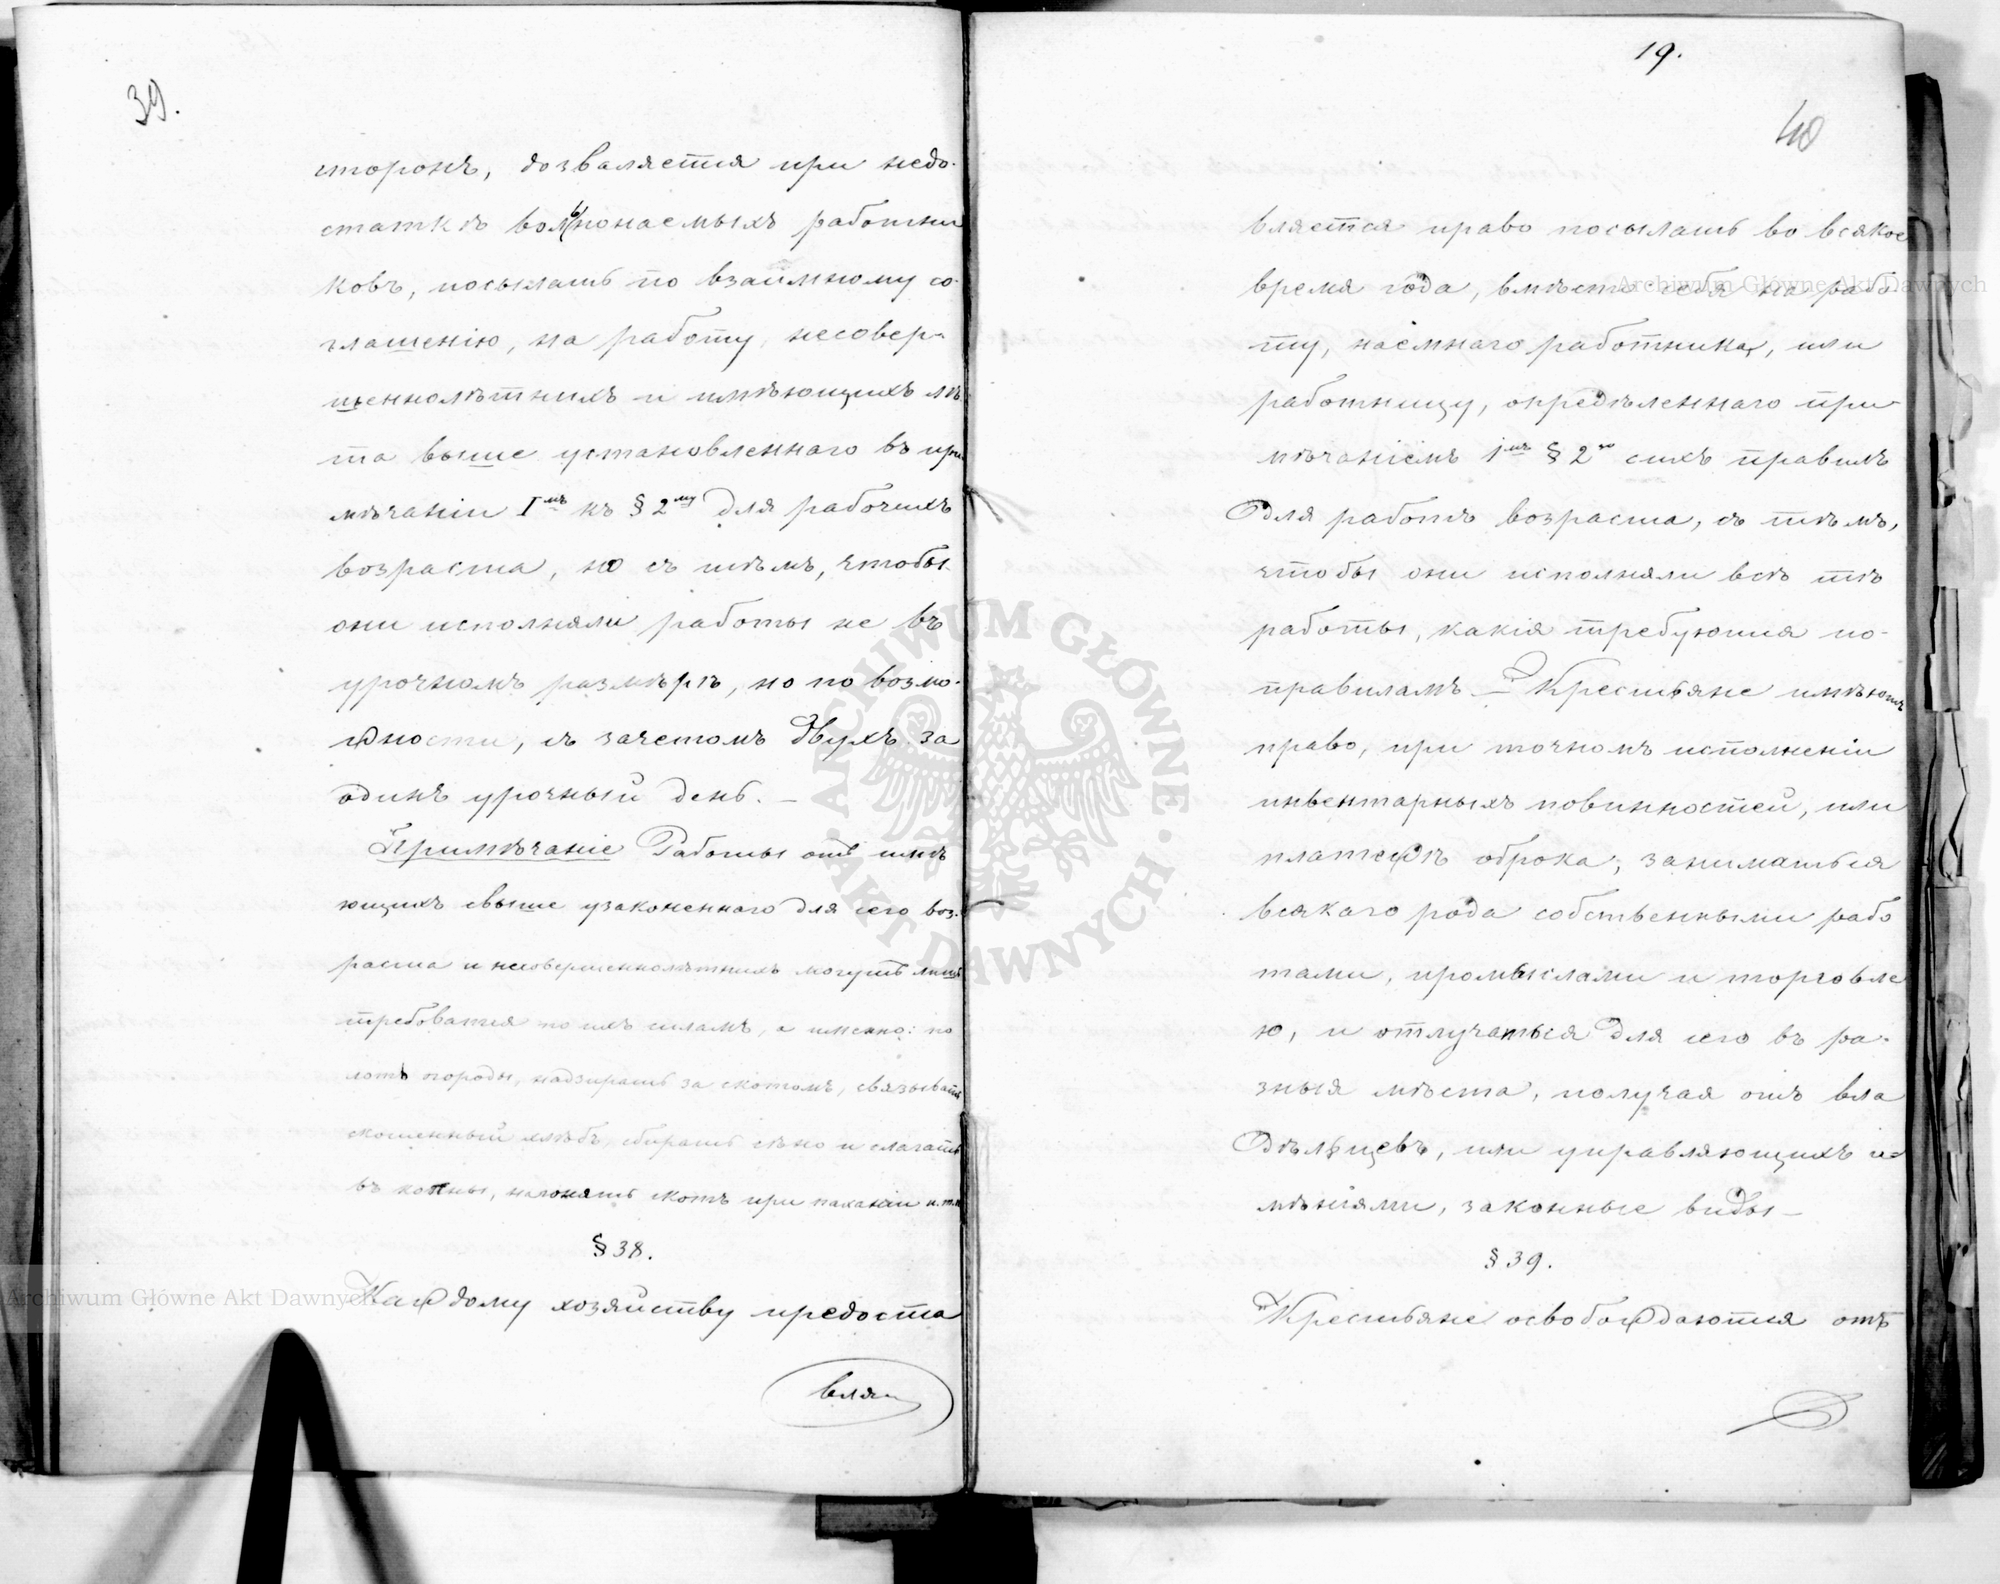 39.
сторонъ, дозваляется при недо-
статкѣ вольнонаемныхъ работни
ковъ, посылать по взаимному со-
глашенію, на работу, несовер-
шеннолѣтнихъ и имѣющихъ лѣ
та выше установленнаго въ при
мѣчаніи I мъ къ § 2 му для рабочихъ
возраста, но съ тѣмъ, чтобы
они исполняли работы не въ
урочномъ размѣрѣ, но по возмо-
жности, съ зачетомъ двухъ за
одинъ урочный день. —
Примѣчаніе Работы отъ имѣ
ющихъ свыше узаконеннаго для сего воз-
раста и несовершеннолѣтнихъ могутъ лишь
требоваться по ихъ силамъ, а именно: по
лоть огороды, надзирать за скотомъ, связывать
скошенный хлѣбъ, сбирать сѣно и слагать
въ копны, нагонять скотъ при паханіи и. т. п.
§ 38.
Каждому хозяйству предоста
вля
19.
40
вляется право посылать во всякое
время года, вмѣсто себя на рабо
ту, наемнаго работника, или
работницу, опредѣленнаго при-
мѣчаніемъ 1 мъ § 2 го сихъ правилъ
для работъ возраста, съ тѣмъ,
чтобы они исполняли всѣ тѣ
работы, какія требуются по-
правиламъ — Крестьяне имѣютъ
право, при точномъ исполненіи
инвентарныхъ повинностей, или
платежѣ оброка, заниматься
всякаго рода собственными рабо
тами, промыслами и торговле
ю, и отлучаться для сего въ ра-
зныя мѣста, получая отъ вла
дѣльцевъ, или управляющихъ и
мѣніями, законные виды —
§ 39.
Крестьяне освобождаются отъ
Archiwum Główne Akt Dawnych
Archiwum Główne Akt Dawnych
ARCHIWUM GŁÓWNE · AKT DAWNYCH ·